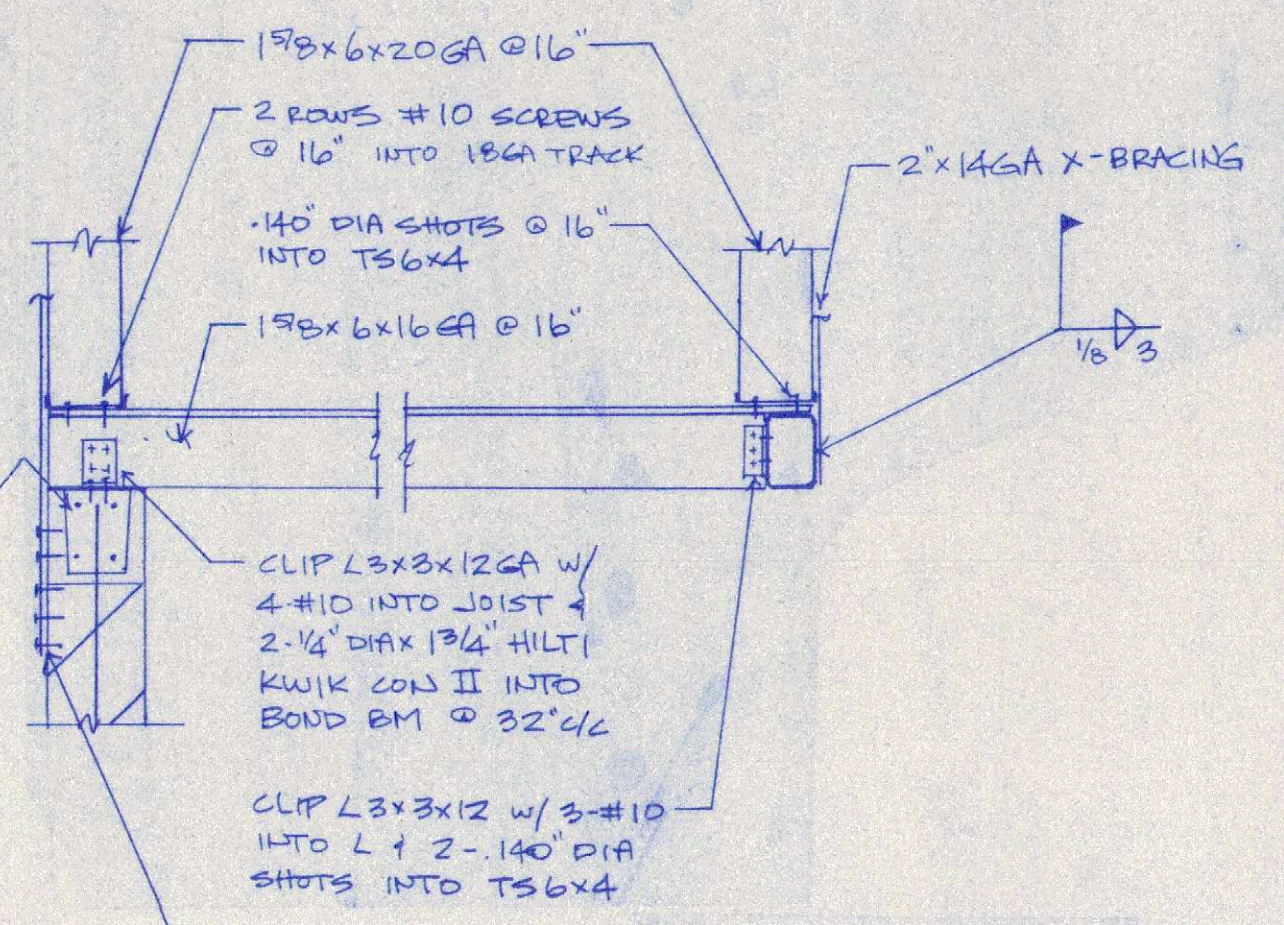 1 5/8 x 6 x 20 GA @ 16"
2 ROWS #10 SCREWS
@ 16" INTO 18GA TRACK
2" x 14GA X-BRACING
.140" DIA SHOTS @ 16"
INTO TS6x4
1 5/8 x 6 x 16 GA @ 16"
1/8 3
CLIP L3x3x12GA W/
4-#10 INTO JOIST &
2-1/4" DIA x 1 3/4" HILTI
KWIK CON II INTO
BOND BM @ 32" c/c
CLIP L3x3x12 W/ 3-#10
INTO L & 2-.140" DIA
SHOTS INTO TS6x4